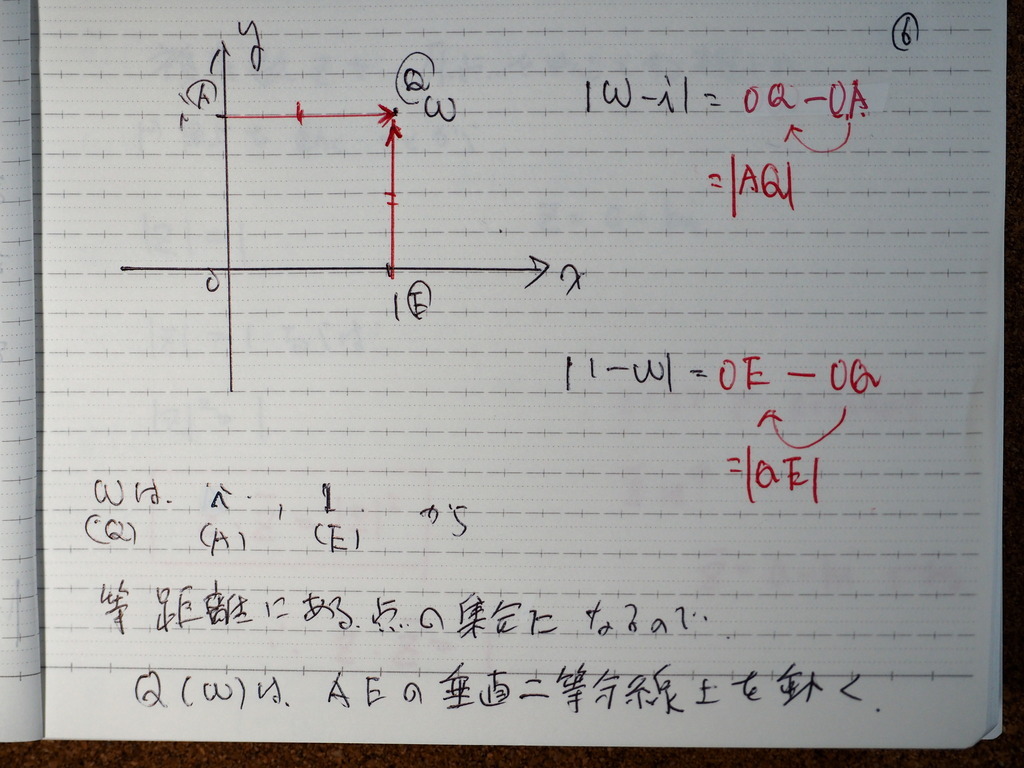 ⑥
y
i Ⓐ
Ⓠ
ω
|ω-i| = OQ - OA
= |AQ|
O
1 Ⓔ
x
|1-ω| = OE - OQ
= |QE|
ωは. i , 1 から
(Q) (A) (E)
等距離にある点の集合になるので.
Q(ω)は、AEの垂直二等分線上を動く.